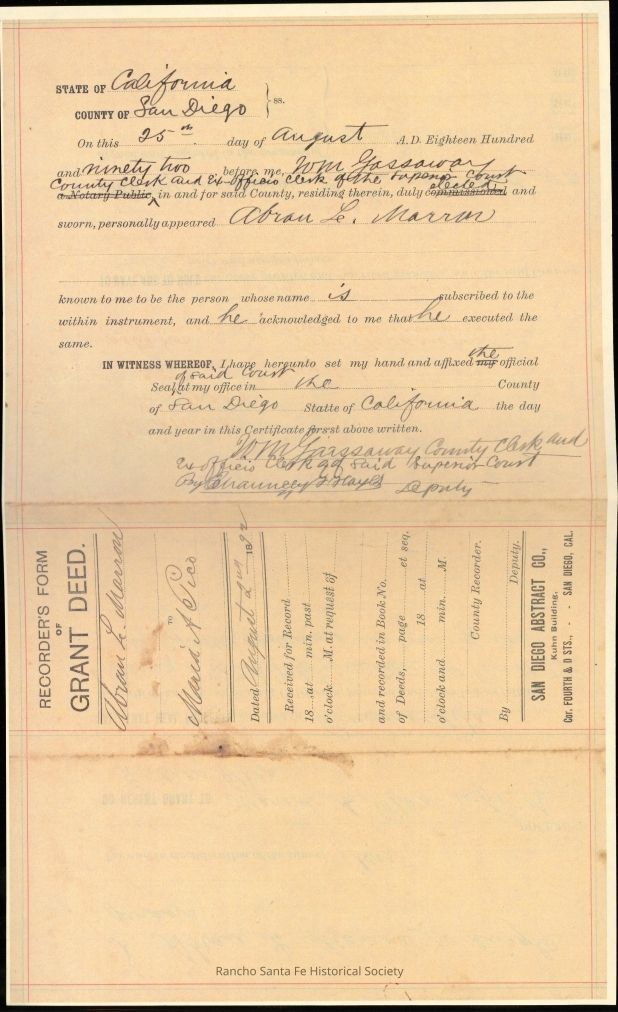 STATE OF California
COUNTY OF San Diego } ss.
On this 25th day of August A.D. Eighteen Hundred
and ninety two before me, WM Gassaway
County Clerk and Ex-officio Clerk of the Superior Court
a Notary Public, in and for said County, residing therein, duly commissioned elected and
sworn, personally appeared Abran L. Marron
known to me to be the person whose name is subscribed to the
within instrument, and he acknowledged to me that he executed the
same.
IN WITNESS WHEREOF, I have hereunto set my hand and affixed my the official
Seal of said Court at my office in the County
of San Diego Statte of California the day
and year in this Certificate first above written.
WM Gassaway County Clerk and
Ex officio Clerk of said Superior Court
By Chauncey Hayes Deputy
RECORDER'S FORM
OF
GRANT DEED.
Abran L. Marron
TO
Maria A Pico
Dated August 1892
Received for Record
18 at min. past
o'clock M. at request of
and recorded in Book No.
of Deeds, page et seq.
18 at
o'clock and min. M.
County Recorder.
By Deputy.
SAN DIEGO ABSTRACT CO.,
Kuhn Building.
Cor. FOURTH & D STS., - - SAN DIEGO, CAL.
Rancho Santa Fe Historical Society